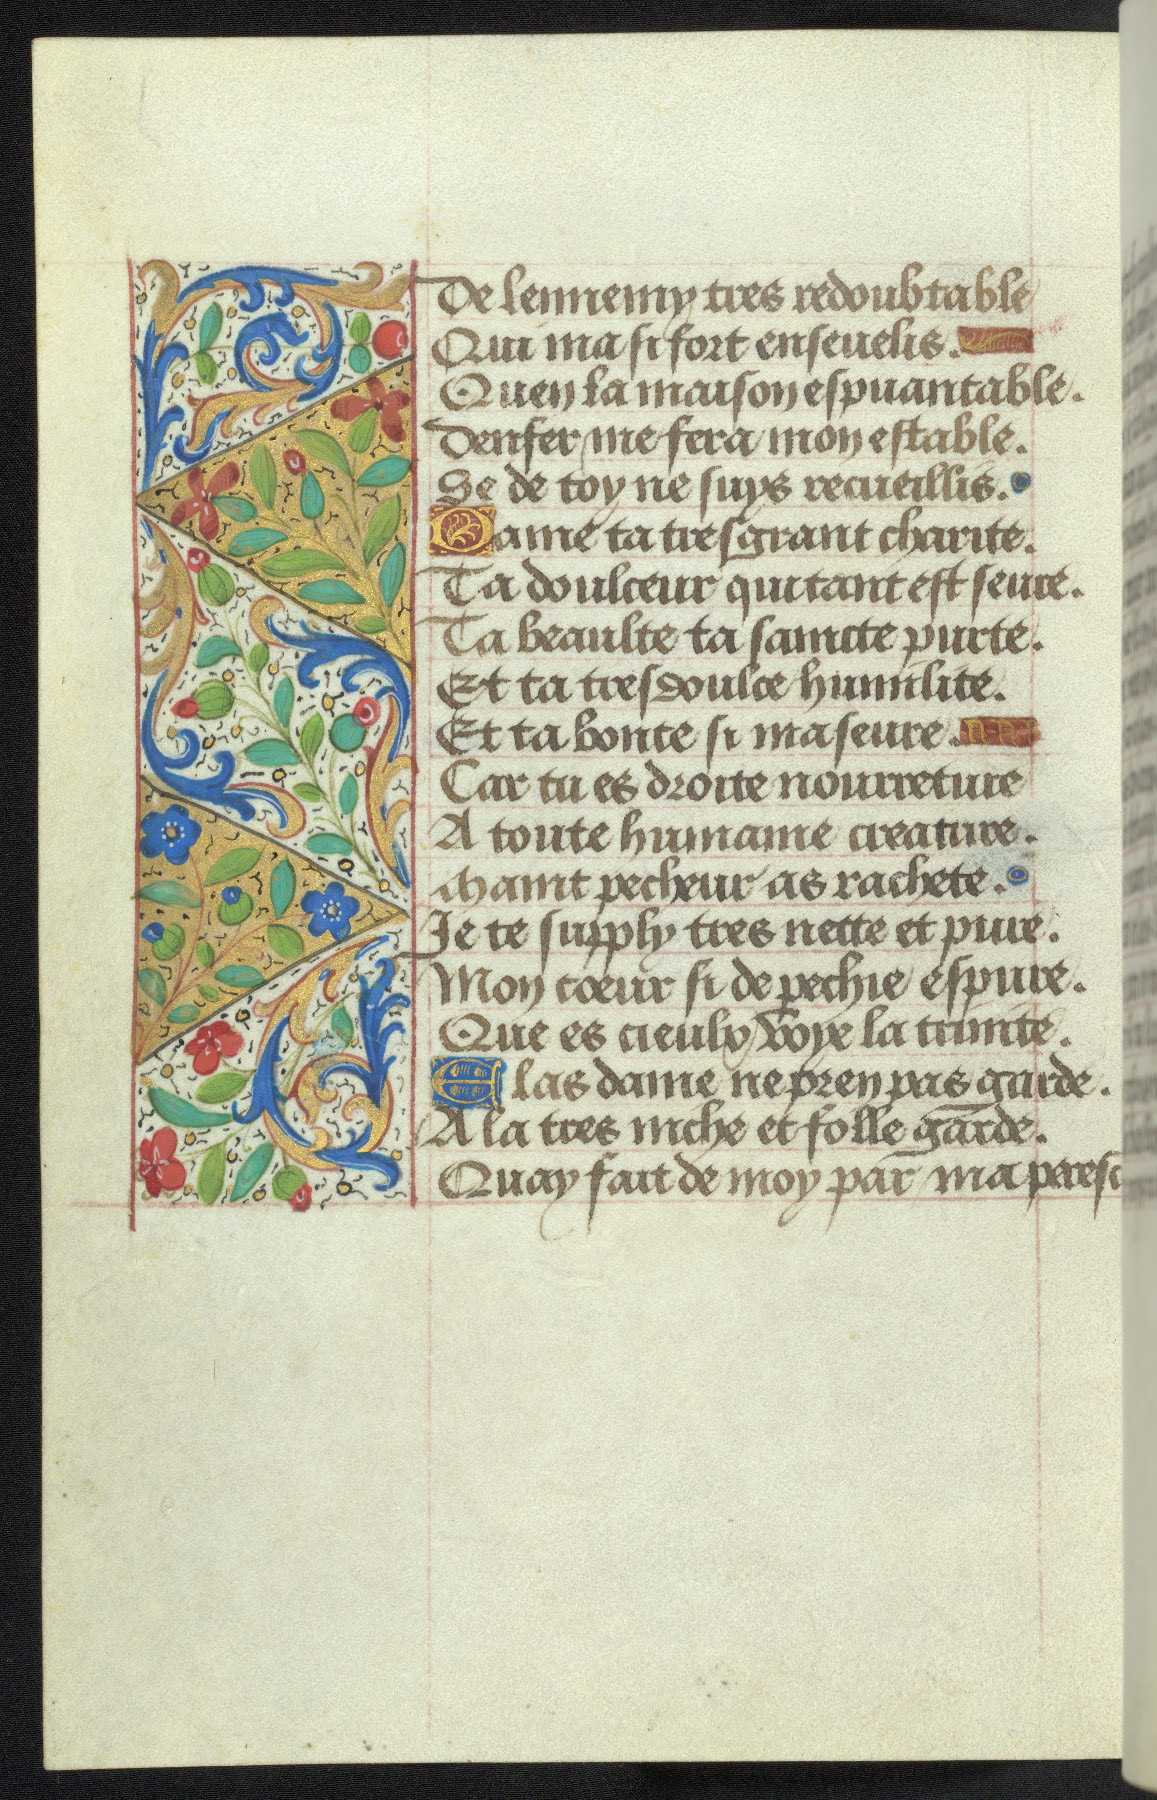 De lennemy tres redoubtable
Qui ma si fort enseuelis.
Quen la maison espuantable.
Denfer me fera mon estable.
Se de toy ne suys recueillis.
Dame ta tresgrant charite.
Ta doulceur qui tant est seure.
Ta beaulte ta saincte purte.
Et ta tresdoulce humilite.
Et ta bonte si maseure.
Car tu es droite nourreture
A toute humaine creature.
Maint pecheur as rachete.
Je te supply tres nette et pure.
Mon coeur si de pechie espure.
Que es cieulx voye la trinite.
Elas dame ne pren pas garde.
A la tres niche et folle garde.
Quay fait de moy par ma peresc